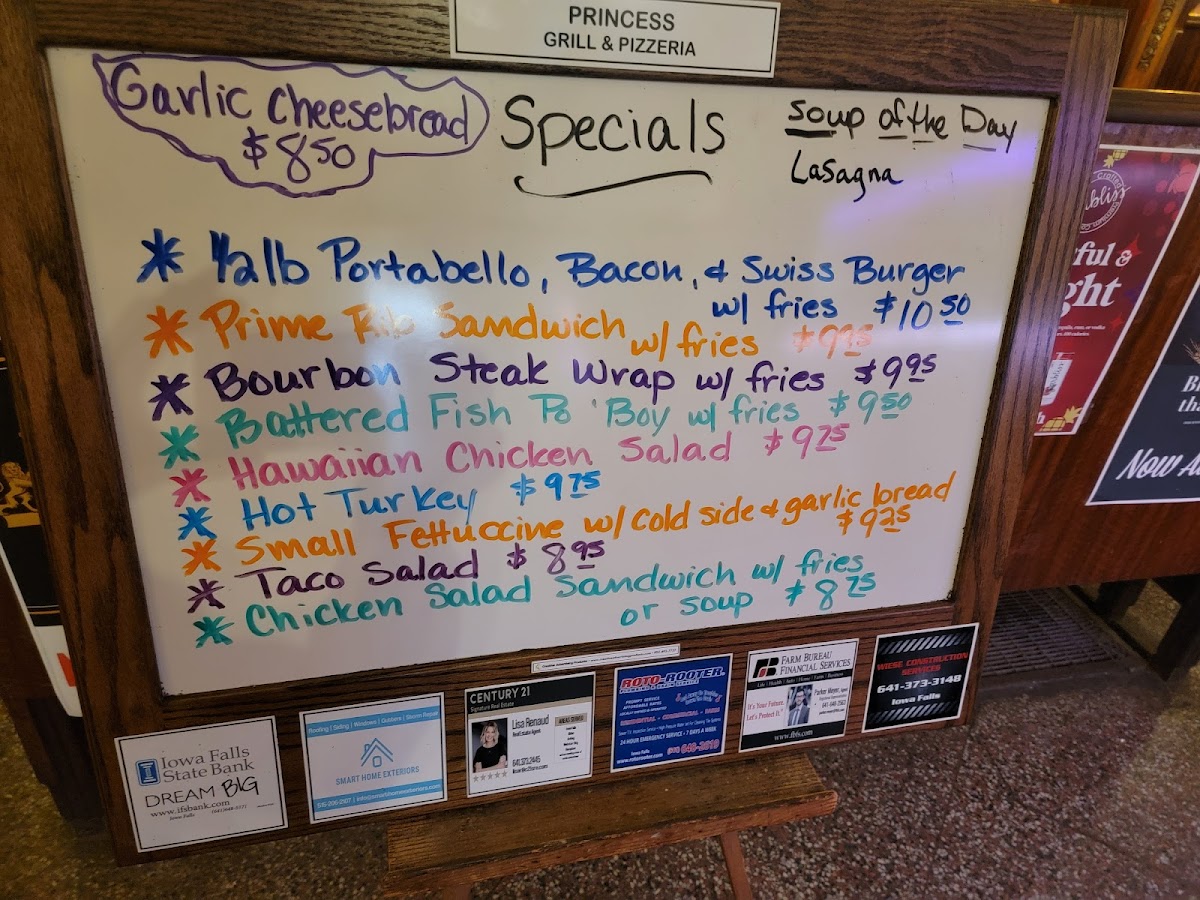 PRINCESS
GRILL & PIZZERIA
Garlic Cheesebread
$8.50
Specials
Soup of the Day
Lasagna
* 1/2 lb Portabello, Bacon, & Swiss Burger
w/ fries $10.50
* Prime Rib Sandwich w/ fries $9.95
* Bourbon Steak Wrap w/ fries $9.95
* Battered Fish Po 'Boy w/ fries $9.50
* Hawaiian Chicken Salad $9.25
* Hot Turkey $9.75
* Small Fettuccine w/ cold side & garlic bread
$9.25
* Taco Salad $8.95
* Chicken Salad Sandwich w/ fries
or soup $8.75
Iowa Falls
State Bank
DREAM BIG
www.ifsbank.com
Iowa Falls
Roofing | Siding | Windows | Gutters | Storm Repair
SMART HOME EXTERIORS
CENTURY 21
Signature Real Estate
Lisa Renaud
Real Estate Agent
641.373.2445
ROTO-ROOTER
RESIDENTIAL - COMMERCIAL - FARMS
24 HOUR EMERGENCY SERVICE - 7 DAYS A WEEK
Iowa Falls
www.rotorooter.com
FARM BUREAU
FINANCIAL SERVICES
It's Your Future.
Let's Protect It.
Parker Meyer, Agent
www.fbfs.com
WIESE CONSTRUCTION
SERVICES
641-373-3148
Iowa Falls
bliss
ful &
ght
Now A